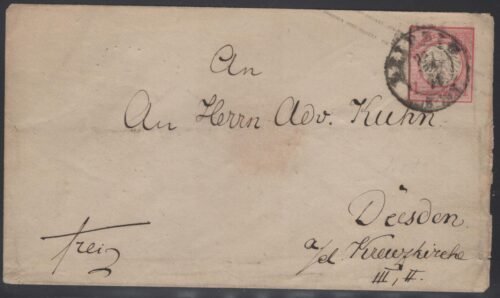 LEIPZIG
An
An Herrn Adv. Kuhn.
Dresden
a/d. Kreuzkirche
III, II.
frei